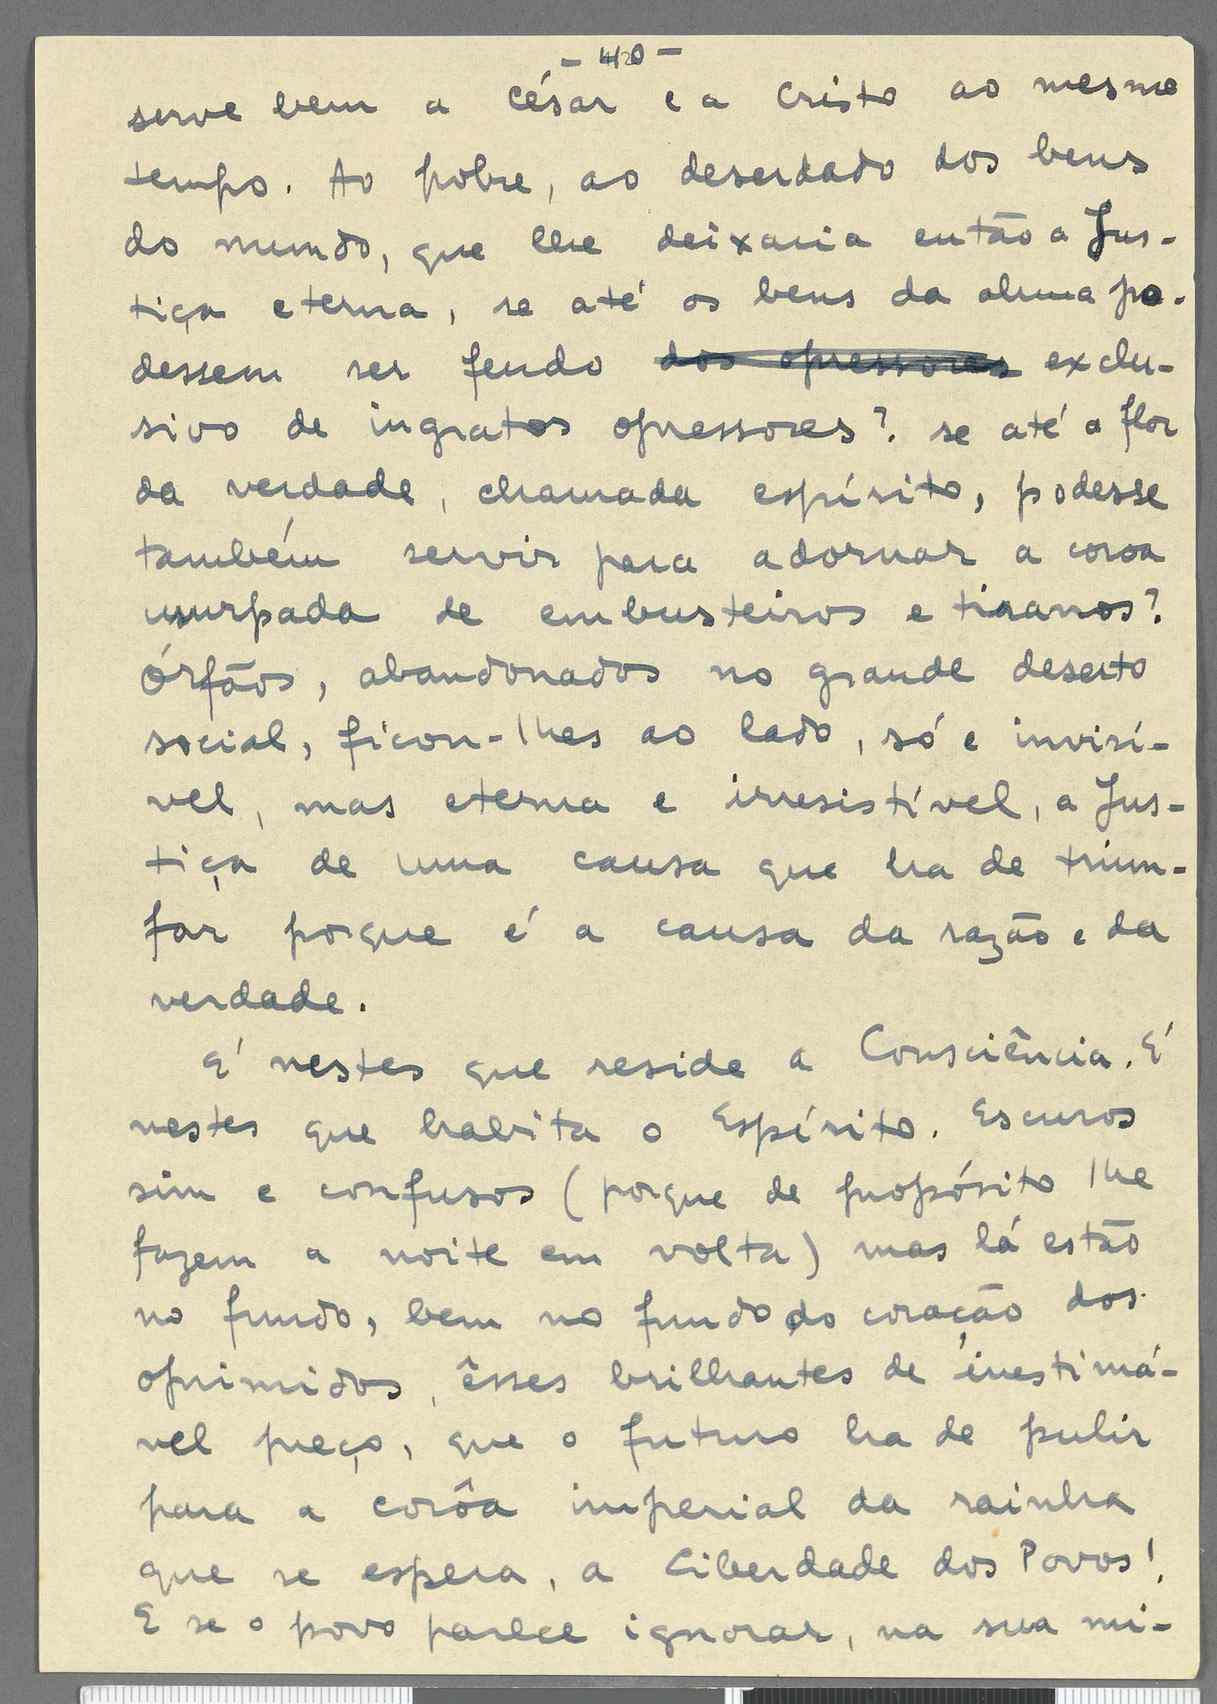 - 420 -
serve bem a César e a Cristo ao mesmo
tempo. Ao pobre, ao deserdado dos bens
do mundo, que lhe deixaria então a Jus-
tiça eterna, se até os bens da alma po-
dessem ser feudo dos opressores exclu-
sivo de ingratos opressores? se até a flor
da verdade, chamada espírito, podesse
também servir para adornar a coroa
usurpada de embusteiros e tiranos?
Órfãos, abandonados no grande deserto
social, ficou-lhes ao lado, só e invisí-
vel, mas eterna e irresistível, a Jus-
tiça de uma causa que ha de triun-
far porque é a causa da razão e da
verdade.
É nestes que reside a Consciência. É
nestes que habita o Espírito. Escuros
sim e confusos (porque de propósito lhe
fazem a noite em volta) mas lá estão
no fundo, bem no fundo do coração dos
oprimidos, êsses brilhantes de inestimá-
vel preço, que o futuro ha de pulir
para a corôa imperial da rainha
que se espera, a Liberdade dos Povos!
E se o povo parece ignorar, na sua mi-